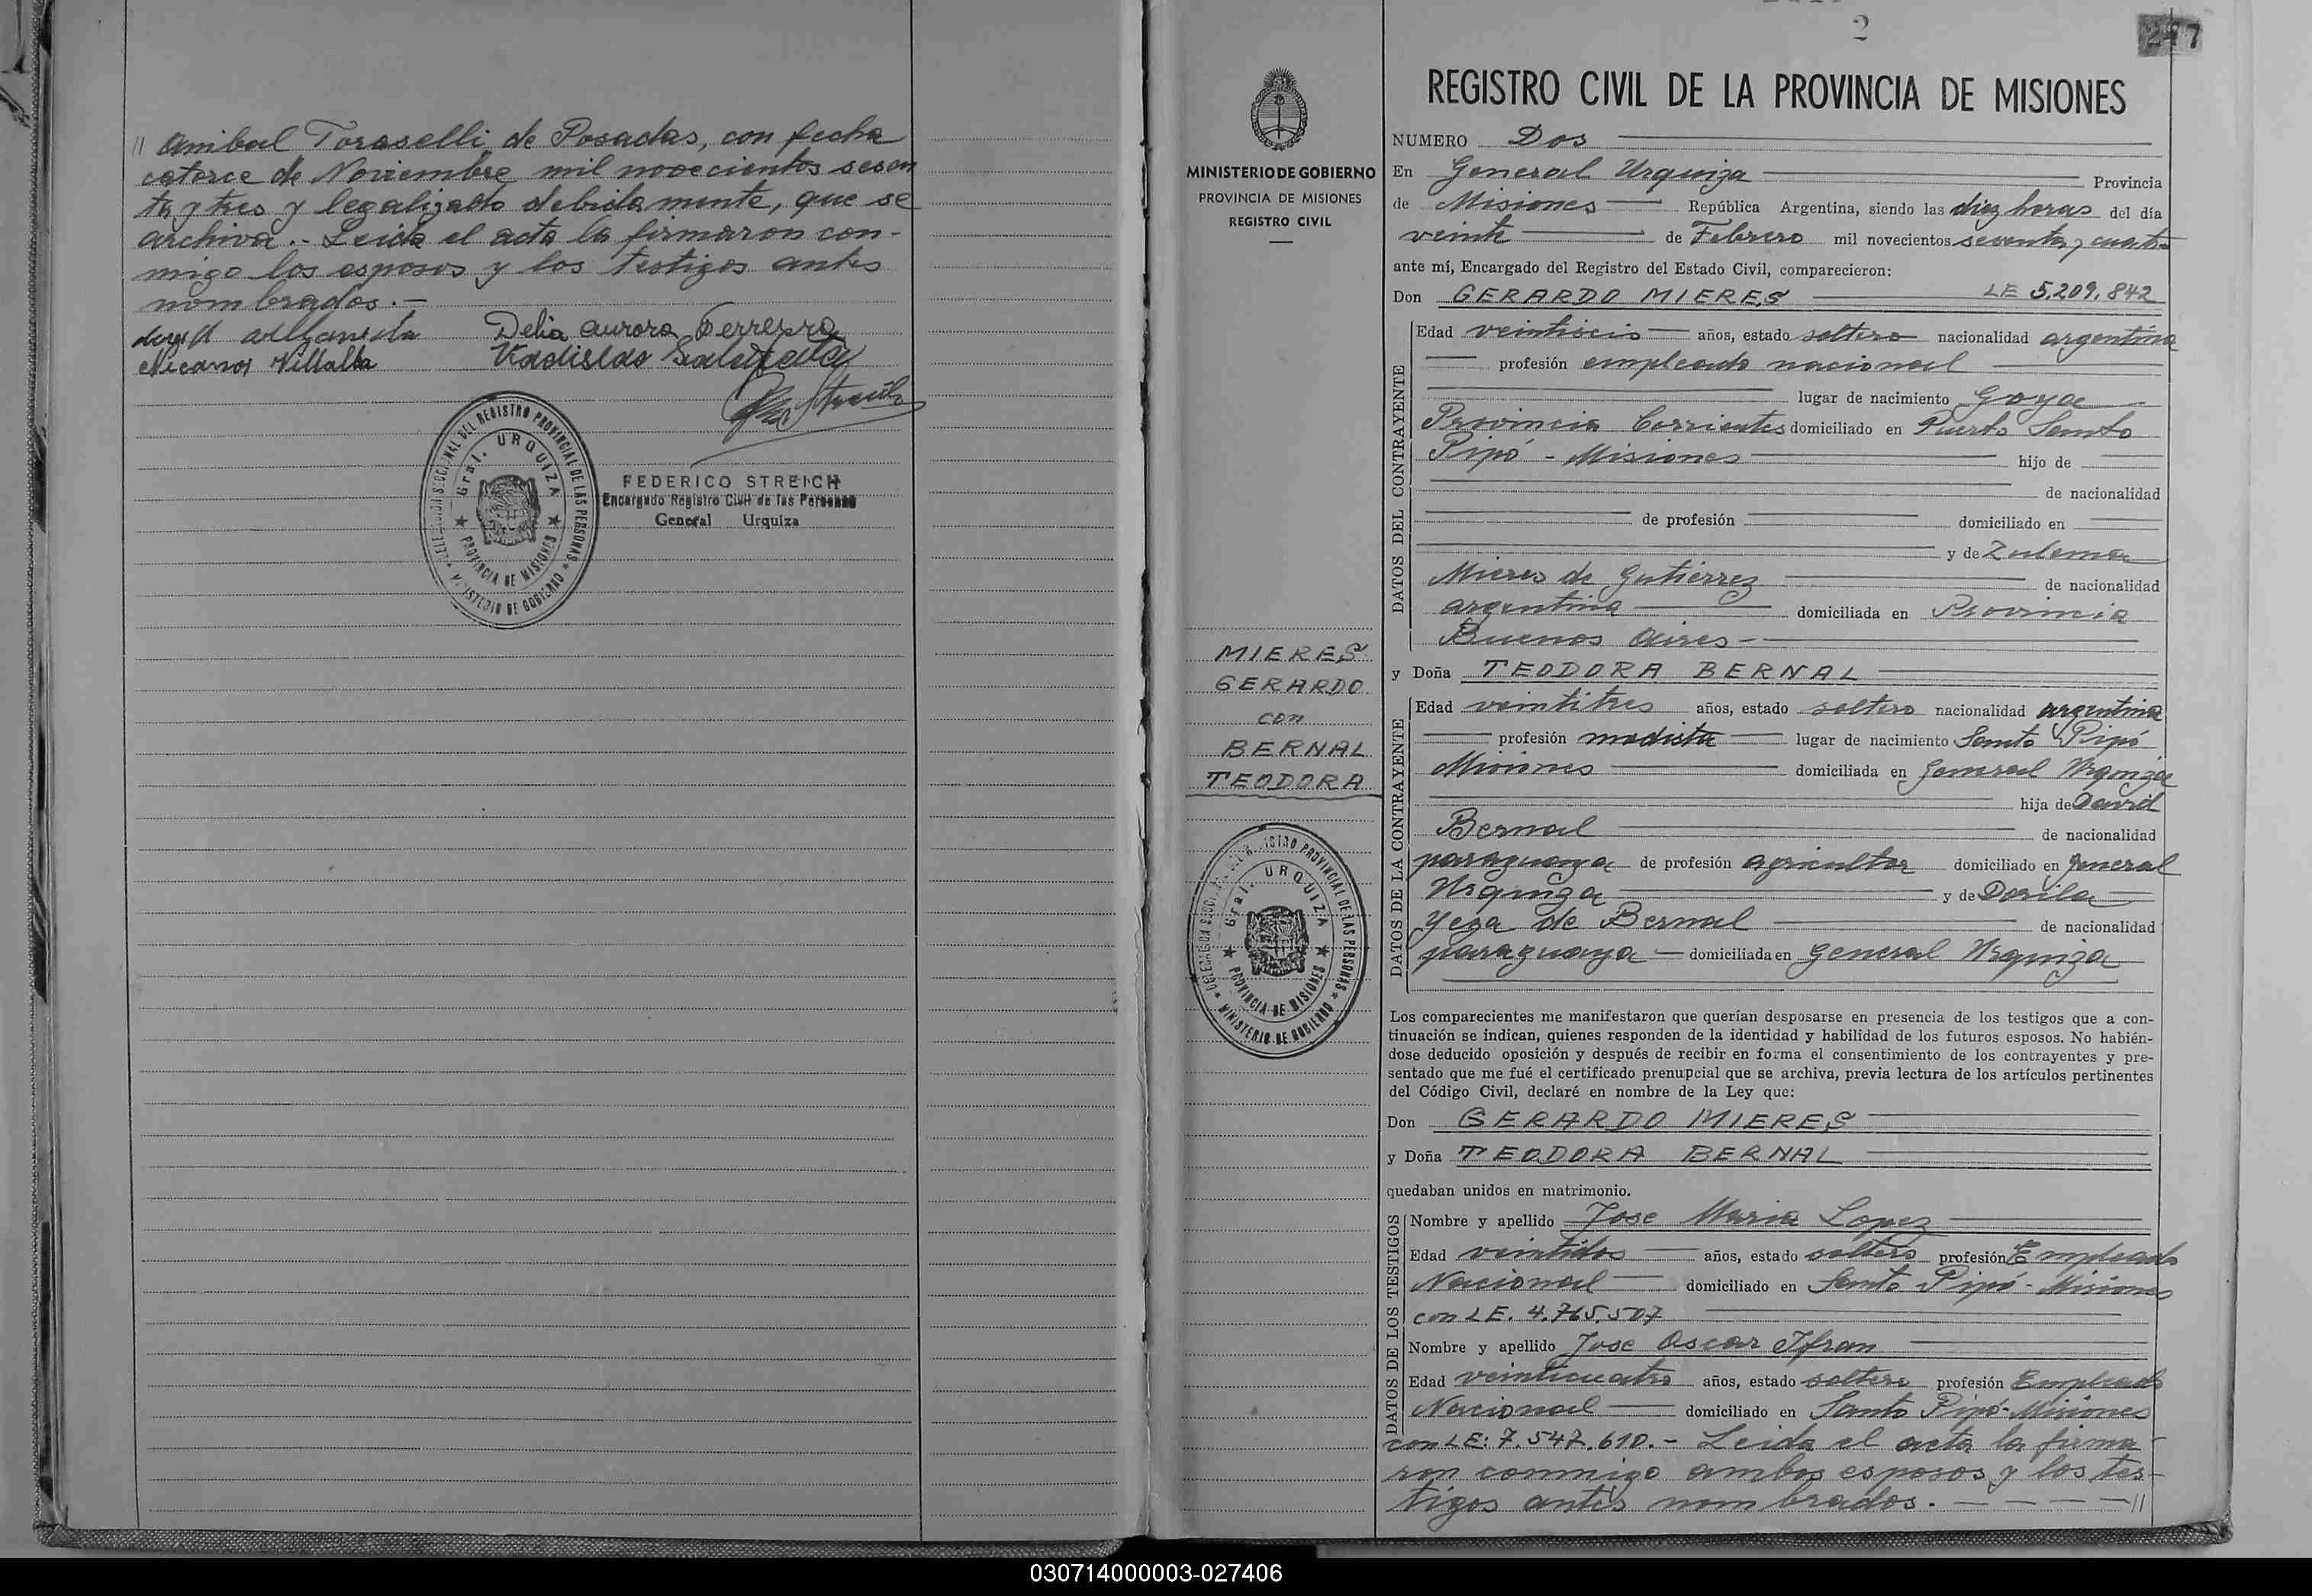 // Anibal Toraselli de Posadas, con fecha
catorce de Noviembre mil novecientos sesen
ta y tres y legalizado debidamente, que se
archiva.- Leida el acta la firmaron con-
migo los esposos y los testigos antes
nombrados.-
Delia Aurora Ferreyra
Nicanor Villalba
FEDERICO STREICH
Encargado Registro Civil de las Personas
General Urquiza
DELEGACION SECCIONAL DEL REGISTRO PROVINCIAL DE LAS PERSONAS
Gral. URQUIZA
PROVINCIA DE MISIONES
MINISTERIO DE GOBIERNO
2
277
MINISTERIO DE GOBIERNO
PROVINCIA DE MISIONES
REGISTRO CIVIL
MIERES
GERARDO
con
BERNAL
TEODORA
DELEGACION SECCIONAL DEL REGISTRO PROVINCIAL DE LAS PERSONAS
Gral. URQUIZA
PROVINCIA DE MISIONES
MINISTERIO DE GOBIERNO
REGISTRO CIVIL DE LA PROVINCIA DE MISIONES
NUMERO Dos
En General Urquiza Provincia
de Misiones República Argentina, siendo las diez horas del día
veinte de Febrero mil novecientos sesenta y cuatro
ante mí, Encargado del Registro del Estado Civil, comparecieron:
Don GERARDO MIERES LE 5.209.842
DATOS DEL CONTRAYENTE
Edad veintiseis años, estado soltero nacionalidad argentina
profesión empleado nacional
lugar de nacimiento Goya
Provincia Corrientes domiciliado en Puerto Santo
Pipó - Misiones hijo de
de nacionalidad
de profesión domiciliado en
y de Zulema
Mieres de Gutiérrez de nacionalidad
argentina domiciliada en Provincia
Buenos Aires -
y Doña TEODORA BERNAL
DATOS DE LA CONTRAYENTE
Edad veintitres años, estado soltera nacionalidad argentina
profesión modista lugar de nacimiento Santo Pipó
Misiones domiciliada en General Urquiza
hija de David
Bernal de nacionalidad
paraguaya de profesión agricultor domiciliado en General
Urquiza y de Dorila
Yega de Bernal de nacionalidad
paraguaya domiciliada en General Urquiza
Los comparecientes me manifestaron que querían desposarse en presencia de los testigos que a con-
tinuación se indican, quienes responden de la identidad y habilidad de los futuros esposos. No habién-
dose deducido oposición y después de recibir en forma el consentimiento de los contrayentes y pre-
sentado que me fué el certificado prenupcial que se archiva, previa lectura de los artículos pertinentes
del Código Civil, declaré en nombre de la Ley que:
Don GERARDO MIERES
y Doña TEODORA BERNAL
quedaban unidos en matrimonio.
DATOS DE LOS TESTIGOS
Nombre y apellido Jose Maria Lopez
Edad veintidos años, estado soltero profesión Empleado
Nacional domiciliado en Santo Pipó - Misiones
con LE. 4.765.507
Nombre y apellido Jose Oscar Ifran
Edad veinticuatro años, estado soltero profesión Empleado
Nacional domiciliado en Santo Pipó - Misiones
con LE: 7.547.610.- Leida el acta la firma-
ron conmigo ambos esposos y los tes-
tigos antes nombrados. - - - - //
030714000003-027406